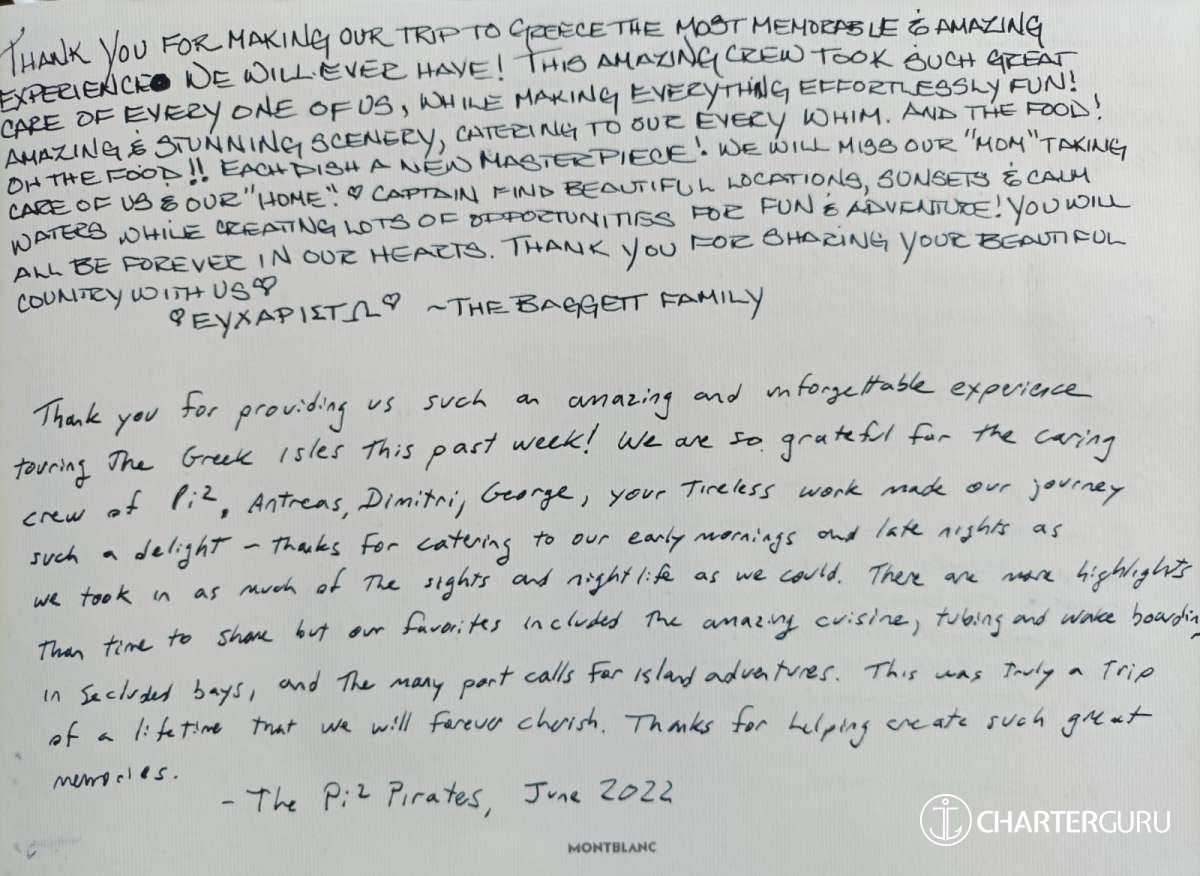 THANK YOU FOR MAKING OUR TRIP TO GREECE THE MOST MEMORABLE & AMAZING
EXPERIENCE WE WILL EVER HAVE! THIS AMAZING CREW TOOK SUCH GREAT
CARE OF EVERY ONE OF US, WHILE MAKING EVERYTHING EFFORTLESSLY FUN!
AMAZING & STUNNING SCENERY, CATERING TO OUR EVERY WHIM. AND THE FOOD!
OH THE FOOD!! EACH DISH A NEW MASTERPIECE! WE WILL MISS OUR "MOM" TAKING
CARE OF US & OUR "HOME". ♡ CAPTAIN FIND BEAUTIFUL LOCATIONS, SUNSETS & CALM
WATERS WHILE CREATING LOTS OF OPPORTUNITIES FOR FUN & ADVENTURE! YOU WILL
ALL BE FOREVER IN OUR HEARTS. THANK YOU FOR SHARING YOUR BEAUTIFUL
COUNTRY WITH US ♡
♡ ΕΥΧΑΡΙΣΤΩ ♡ ~THE BAGGETT FAMILY
Thank you for providing us such an amazing and unforgettable experience
touring The Greek Isles this past week! We are so grateful for the caring
crew of Pi², Antreas, Dimitri, George, your Tireless work made our journey
such a delight – thanks for catering to our early mornings and late nights as
we took in as much of the sights and nightlife as we could. There are more highlights
than time to share but our favorites included the amazing cuisine, tubing and wake boardin
in secluded bays, and the many port calls for island adventures. This was Truly a Trip
of a lifetime that we will forever cherish. Thanks for helping create such great
memories.
– The Pi² Pirates, June 2022
CHARTERGURU
MONTBLANC